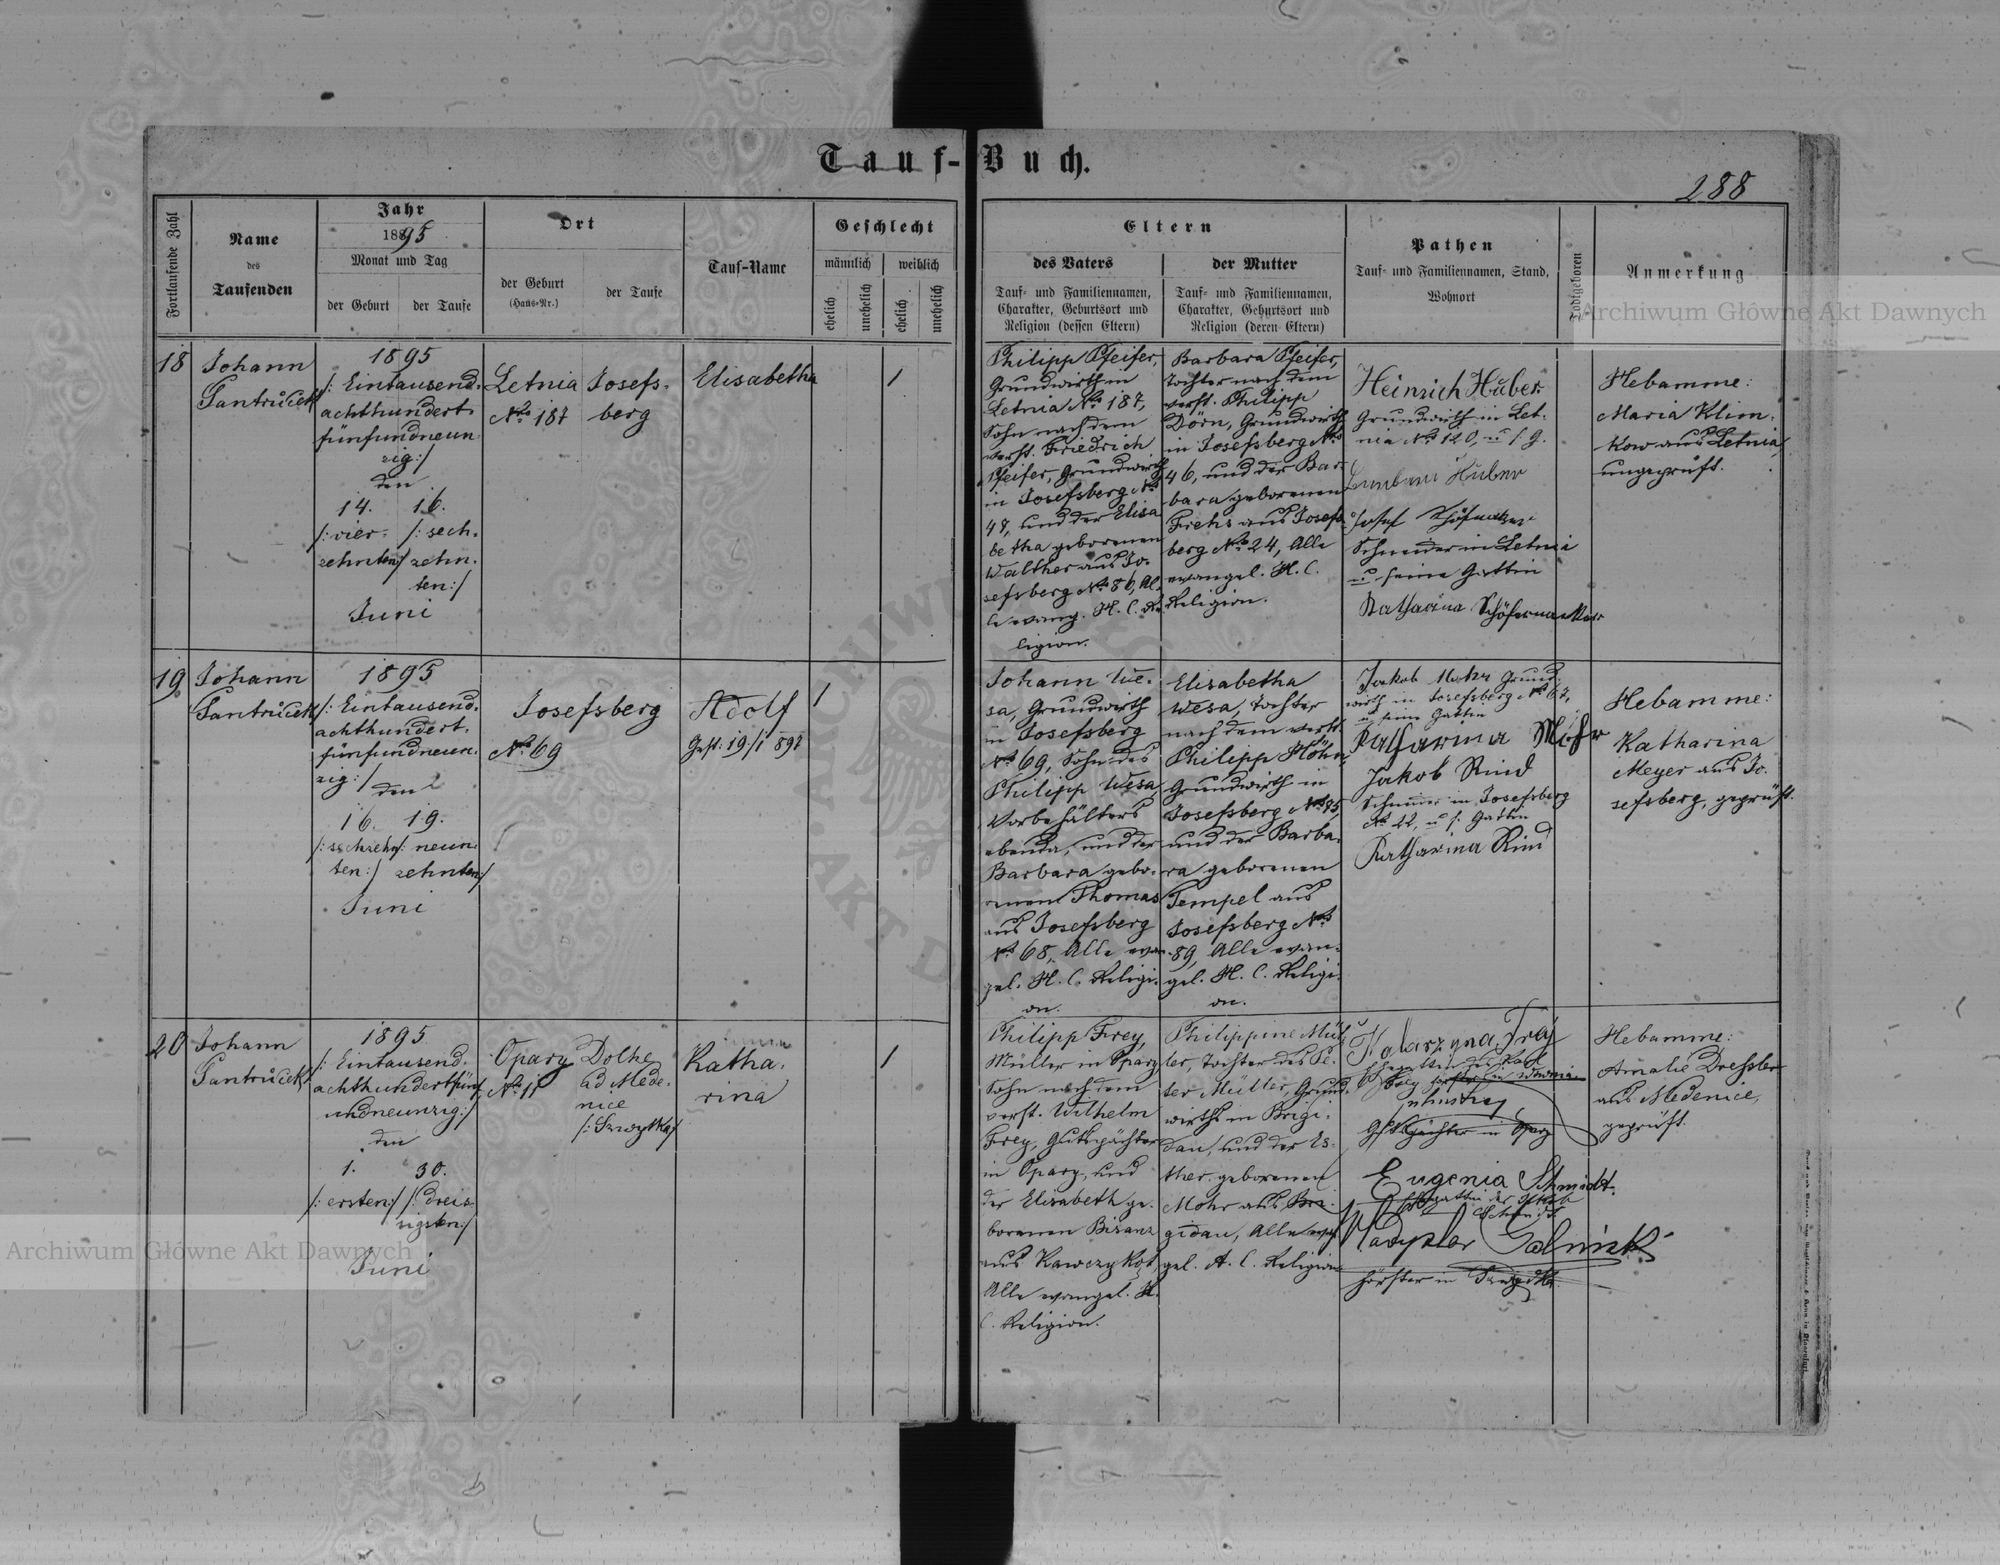 Tauf-Buch.
288
Fortlaufende Zahl
Name
des
Taufenden
Jahr
1895
Monat und Tag
der Geburt
der Taufe
Ort
der Geburt
(Haus-Nr.)
der Taufe
Tauf-Name
Geschlecht
männlich
weiblich
ehelich
unehelich
ehelich
unehelich
Eltern
des Vaters
Tauf- und Familiennamen,
Charakter, Geburtsort und
Religion (dessen Eltern)
der Mutter
Tauf- und Familiennamen,
Charakter, Geburtsort und
Religion (deren Eltern)
Pathen
Tauf- und Familiennamen, Stand,
Wohnort
Todtgeboren
Anmerkung
18
Johann
Santrůček
1895
/: Eintausend-
achthundert-
fünfundneun-
zig:/
den
14. 16.
/: vier- /: sech-
zehnten/ zehn-
ten:/
Juni
Letnia
No 187
Josefs-
berg
Elisabetha
1
Philipp Pfeifer,
Grundwirth in
Letnia No 187,
Sohn nach dem
verst. Friedrich
Pfeifer, Grundwirth
in Josefsberg No
48, und der Elisa
betha geborenen
Walther aus Jo-
sefsberg No 86, Al-
le evang. H. C. Re-
ligion.
Barbara Pfeifer,
Tochter nach dem
verst. Philipp
Dörn, Grundwirth
in Josefsberg No
46, und der Bar-
bara geborenen
Frehs aus Josefs-
berg No 24, Alle
evangel. H. C.
Religion.
Heinrich Huber
Grundwirth in Let-
nia No 120, u. s. G.
Huber
Josef
Schneider in Letnia
u seine Gattin
Katharina
Hebamme:
Maria Klim-
kow aus Letnia,
ungeprüft.
19
Johann
Santrůček
1895
/: Eintausend-
achthundert-
fünfundneun-
zig:/ den
16. 19.
/: sechzehn- /: neun-
ten:/ zehnten:/
Juni
Josefsberg
No 69
Adolf
Gest: 19/1 897
1
Johann We-
sa, Grundwirth
in Josefsberg
No 69, Sohn des
Philipp Wesa,
Vorbehälters
ebenda, und der
Barbara gebo-
renen Thomas
aus Josefsberg
No 68, Alle evan-
gel. H. C. Religi-
on.
Elisabetha
Wesa, Tochter
nach dem verst.
Philipp Höhn,
Grundwirth in
Josefsberg No 95,
und der Barba-
ra geborenen
Tempel aus
Josefsberg No
89, Alle evan-
gel. H. C. Religi-
on.
Jakob Mohr Grund-
wirth in Josefsberg No 67,
u. seine Gattin
Katharina Mohr
Jakob Rind
in Josefsberg
No 22, u s. Gattin
Katharina Rind
Hebamme:
Katharina
Meyer aus Jo-
sefsberg, geprüft.
20
Johann
Santrůček
1895
/: Eintausend-
achthundertfünf-
undneunzig:/
den
1. 30.
/: ersten:/ /: dreis-
sigsten:/
Juni
Opary
No 11
Dolhe
ad Mede-
nice
Katha-
rina
1
Philipp Frey,
Müller in Opary
Sohn nach dem
verst. Wilhelm
Frey, Gutspächter
in Opary, und
der Elisabeth ge-
borenen Bisanz
aus Kawczykąt,
Alle evangel. H.
C. Religion.
Philippine Mül-
ler, Tochter des Pe-
ter Müller, Grund-
wirths in Brigi-
dau, und der Es-
ther geborenen
Mohr aus Bri-
gidau, Alle evan-
gel. A. C. Religion
Katarzyna Frey
Gutspächter in Opary
Eugenia Schmidt.
Förster in
Hebamme:
Amalie Dressler
aus Medenice,
geprüft.
Archiwum Główne Akt Dawnych
Archiwum Główne Akt Dawnych